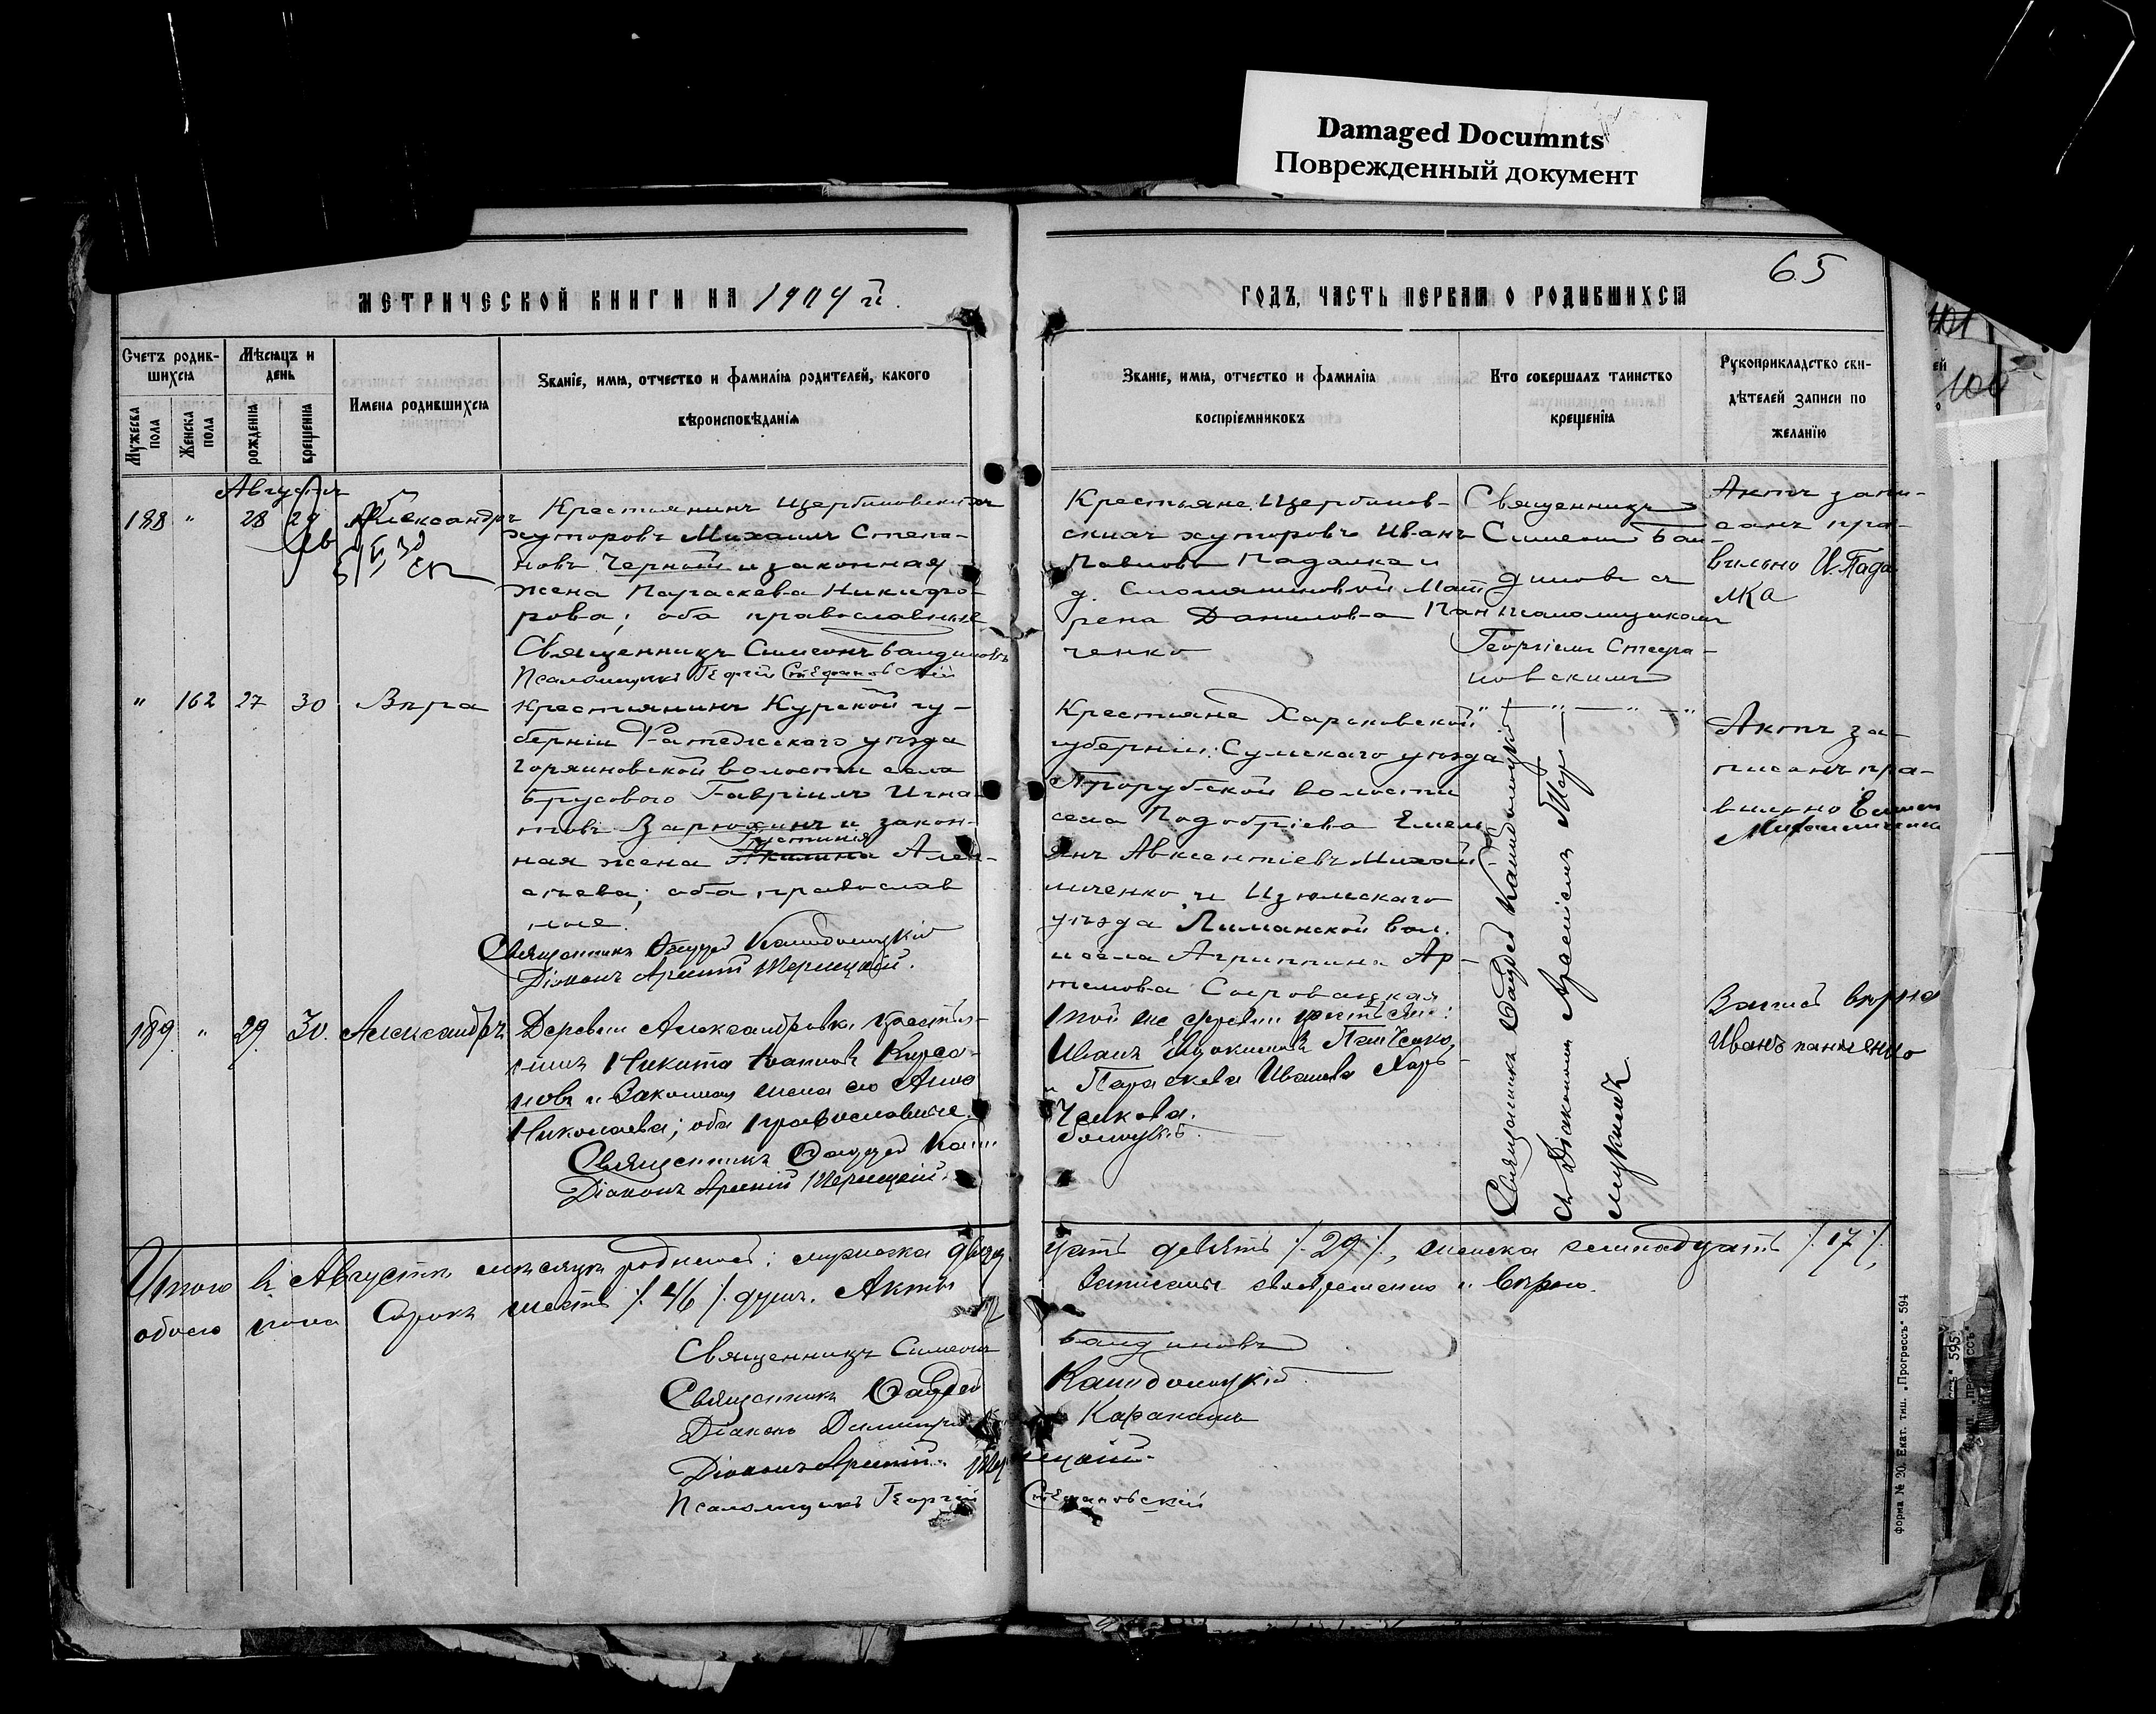 Damaged Documnts
Поврежденный документ
65
МЕТРИЧЕСКОЙ КНИГИ НА 1904 й.
ГОДЪ, ЧАСТЬ ПЕРВАЯ О РОДИВШИХСЯ
Счетъ родив-
шихся
Мужеска пола
Женска пола
Мѣсяцъ и день
рожденія
крещенія
Имена родившихся
Званіе, имя, отчество и фамилія родителей, какого
вѣроисповѣданія
Званіе, имя, отчество и фамилія
воспріемниковъ
Кто совершалъ таинство
крещенія
Рукоприкладство сви-
дѣтелей записи по
желанію
Августъ
188 " 28 29 Александръ
Крестьянинъ Щербиновскихъ
хуторовъ Михаилъ Степа-
новъ Черный и законная
жена Параскева Никифо-
рова; оба православные
Священникъ Симеонъ Бандиновъ
Псаломщикъ Георгій Стефановскій
Крестьяне Щербинов-
скихъ хуторовъ Иванъ
Павловъ Падалка и
рена Данилова Пан
ченко
Священникъ
Симеонъ Бан-
диновъ съ
псаломщикомъ
Георгіемъ Стефа-
новскимъ
Актъ запи-
санъ пра-
вильно И. Пада
лка
" 162 27 30 Вѣра
Крестьянинъ Курской гу-
берніи Фатежскаго уѣзда
Горяиновской волости села
Брусового Гавріилъ Игна-
товъ Зарюхинъ и закон-
Іустинія
ная жена Акилина Алек-
сѣева; оба православ
ные.
Священникъ Фаддей Кашдомоцкій
Діаконъ Арсеній
Крестьяне Харьковской
губерніи: Сумскаго уѣзда
Прорубской волости
села Подобріева Емель
янъ Авксентіевъ Михай-
личенко и Изюмскаго
уѣзда Лиманской вол.
и села Агриппина Ар-
темова Сыровацкая
" — " — " — "
Священникъ Фаддей
съ Діакономъ Арсеніемъ
Актъ за-
писанъ пра-
вильно
189. " 29. 30. Александръ
Деревни Александровки крестья-
нинъ Никита Іоанновъ Кирса-
новъ и Законная жена его Анна
Николаева; оба православные.
Священникъ Фаддей Каш
Діаконъ Арсеній
той же деревни крестьяне:
Иванъ Евдокимовъ Панченко,
и Параскева Иванова Харь-
чекова.
Запись вѣрна
Иванъ панченко
Итого въ Августѣ мѣсяцѣ родилось: мужеска двад
цать девять /. 29 /., женска семнадцать /. 17 /.,
обоего пола Сорокъ шесть /. 46 /. душъ. Акты
записаны своевременно и вѣрно.
Священникъ Симеонъ Бандиновъ
Священникъ Фаддей
Діаконъ Димитрій Каракашъ
Діаконъ Арсеній
Псаломщикъ Георгій Стефановскій
форма № 20. Екат. тип. „Прогрессъ“ 594